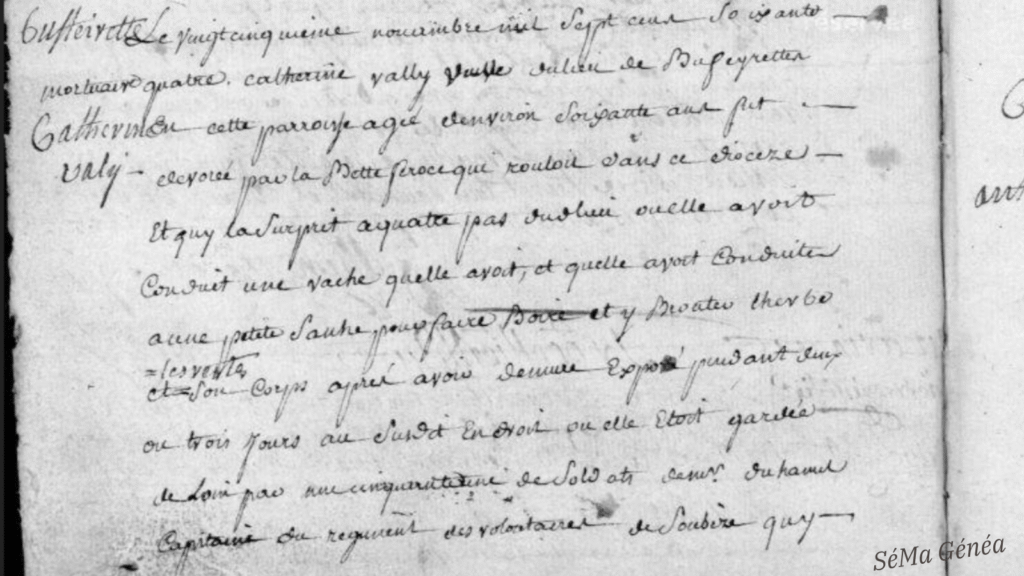 Busseirettes Le vingtcinquieme novambre mil sept cens soixante
mortuaire quatre. catherine vally veuve du lieu de Buffeyrettes
Catherine En cette parroisse agée d'environ soixante ans fut
Valy devorée par la Bette feroce qui rouloit dans ce dioceze
Et quy la surprit a quatte pas du lieu ou elle avoit
Conduit une vache quelle avoit, et quelle avoit Conduite
a une petite sanhe pour faire Boire et y Brouter lherbe
=les restes
et=son Corps aprés avoir demuré Exposé pendant deux
ou trois jours au susdit Endroit ou elle Etoit gardée
de Loin par une cinquantene de Soldats de mr. duhamel
Capitaine du regiment des volontaires de Soubize quy
SéMa Généa